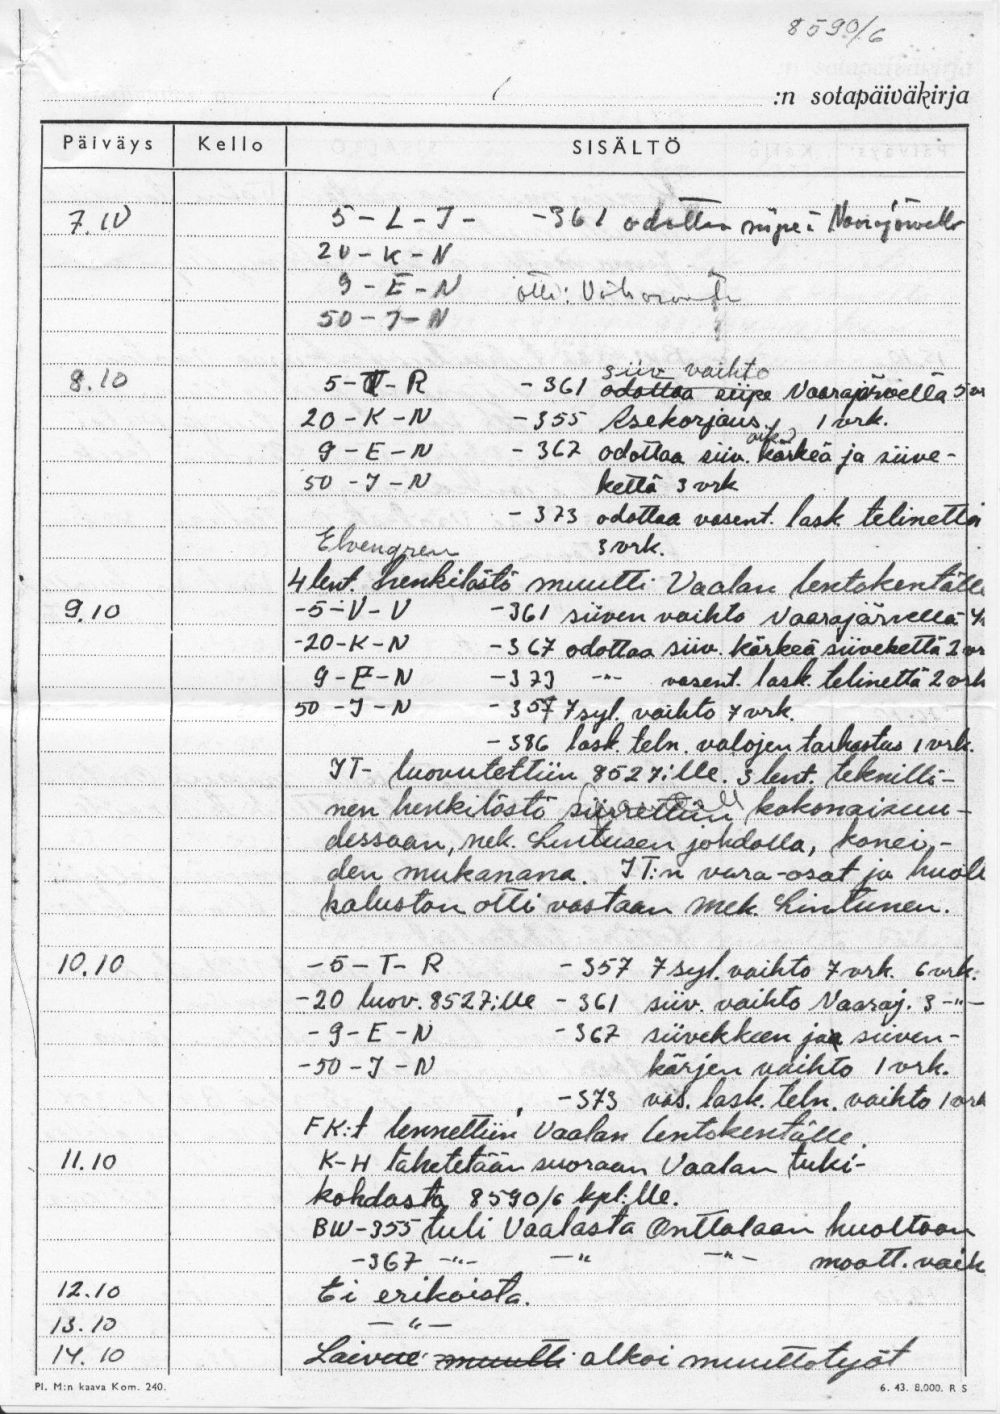 8590/6
:n sotapäiväkirja
Päiväys Kello SISÄLTÖ
7.IV 5-L-J- -361 odottaa siipeä
20-K-N
9-E-N otti:
50-J-N
siiv. vaihto
8.10 5-T-R -361 odottaa siipe Vaarajärvellä 5 vr
20-K-N -355 Asekorjaus, 1 vrk.
9-E-N -362 odottaa siiv. kärkeä ja siive-
50-J-N kettä 3 vrk
-373 odottaa vasent. lask. telinettä
Elvengren 3 vrk.
4 lent. henkilöstö muutti Vaalan lentokentälle
9.10 -5-V-V -361 siiven vaihto Vaarajärvellä
-20-K-N -367 odottaa siiv. kärkeä siivekettä 2 vr
9-E-N -373 -"- vasent. lask. telinettä 2 vrk
50-J-N -357 7 syl. vaihto 7 vrk.
-386 lask. teln. valojen tarkastus 1 vrk.
IT- luovutettiin 8527:lle. 3 lent. teknilli-
nen henkilöstö siirrettiin kokonaisuu-
dessaan, mek. Lintusen johdolla, konei-
den mukanana. IT:n vara-osat ja huolt
kaluston otti vastaan mek. Lintunen.
10.10 -5-T-R -357 7 syl. vaihto 7 vrk. 6 vrk.
-20 luov. 8527:lle -361 siiv. vaihto Vaaraj. 3 -"-
-9-E-N -367 siivekkeen ja siiven-
-50-J-N kärjen vaihto 1 vrk.
-373 vas. lask. teln. vaihto 1 vrk
FK:t lennettiin Vaalan lentokentälle.
11.10 K-H lähetetään suoraan Vaalan tuki-
kohdasta 8590/6 kpl:lle.
BW-355 tuli Vaalasta Onttolaan huoltoon
-367 -"- -"- -"- moott. vaih
12.10 Ei erikoista.
13.10 -"-
14.10 Laivue muutti alkoi muuttotyöt
Pl. M:n kaava Kom. 240. 6. 43. 8.000. R S